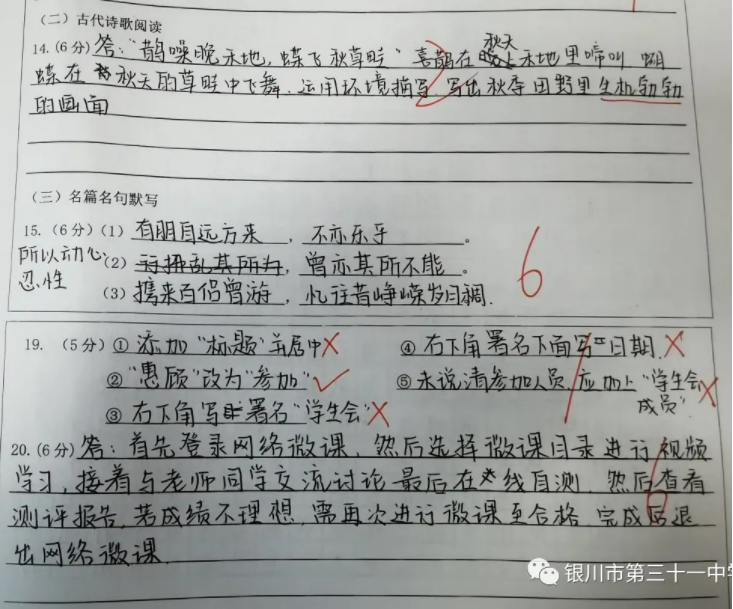 （二）古代诗歌阅读
14.(6分) 答："鹊噪晚禾地，蝶飞秋草畦" 喜鹊在秋天禾地里啼叫 蝴
蝶在秋天的草畦中飞舞. 运用环境描写. 写出秋季田野里生机勃勃
的画面
2
（三）名篇名句默写
15.（6分）（1）有朋自远方来 ，不亦乐乎 。
所以动心
忍性
（2）行拂乱其所为，曾亦其所不能 。
（3）携来百侣曾游 ，忆往昔峥嵘岁月稠.
6
19. （5分）① 添加"标题"并居中
④ 右下角署名下面写日期.
②"惠顾"改为"参加"
⑤未说清参加人员 应加上"学生会
成员"
③ 右下角写署名"学生会"
20.(6分) 答：首先登录网络微课，然后选择微课目录进行视频
学习，接着与老师同学交流讨论 最后在线自测. 然后查看
测评报告，若成绩不理想，需再次进行微课至合格. 完成后退
出网络微课.
6
银川市第三十一中学